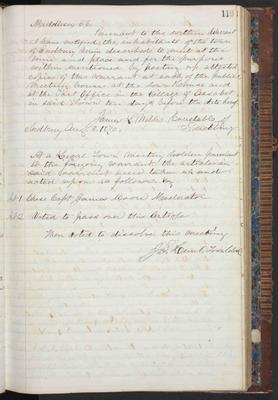 119
Middlesex SS.
Pursuant to the within Warrant
I have notified the inhabitants of the town
of Sudbury herein described to meet at the
time and place and for the purposes
within mentioned by posting up attested
copies of this warrant at each of the public
meeting houses at the Town House and
at the Post Office in the Village of Assabet
in said Town ten days before the date hereof
James L. Willis Constable of
Sudbury Aug. 1870. Sudbury
At a Legal Town meeting holden pursuant
to the foregoing warrant the articles in
said warrant were taken up and
acted upon as follows viz
Art 1 Chose Capt. James Moore Moderator
Art 2 Voted to pass over this Article
Then voted to dissolve this meeting
Town Clerk